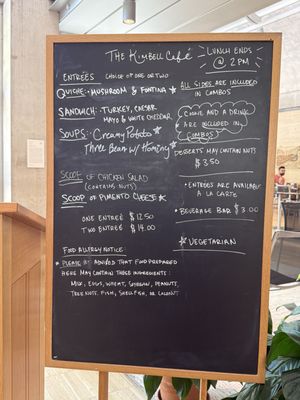 The Kimbell Café
Lunch Ends
@ 2 PM
Entrées Choice of one or two
Quiche: Mushroom & Fontina ★
Sandwich: Turkey, Caesar
Mayo & White Cheddar
Soups: Creamy Potato ★
Three Bean w/ Hominy ★
Scoop of Chicken Salad
(contains nuts)
Scoop of Pimento Cheese ★
One Entree $12.50
Two Entree $14.00
Food Allergy Notice:
★ Please be advised that food prepared
here may contain these ingredients:
Milk, Eggs, Wheat, Soybean, Peanuts,
Tree nuts, Fish, Shellfish, or Coconut
All sides are included
in combos
Cookie and a drink
are included in
combos
Desserts may contain nuts
$3.50
• Entrées are available
a la carte
• Beverage Bar $3.00
★ Vegetarian